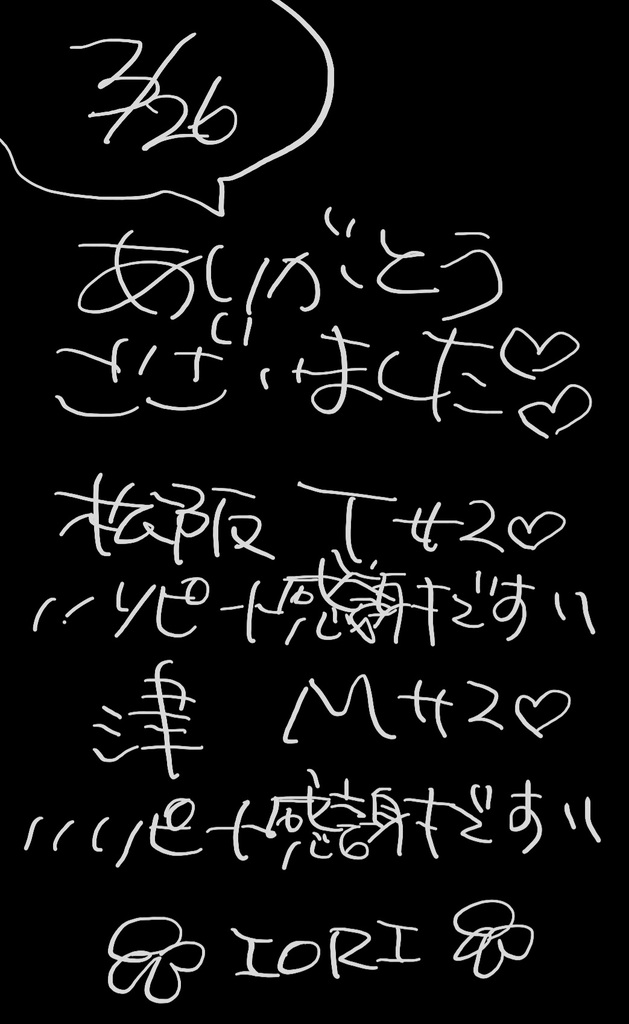 2/26
ありがとう
ございました♡♡
松阪 Tサン♡
\\リピート感謝です//
津 Mサン♡
\\リピート感謝です//
IORI